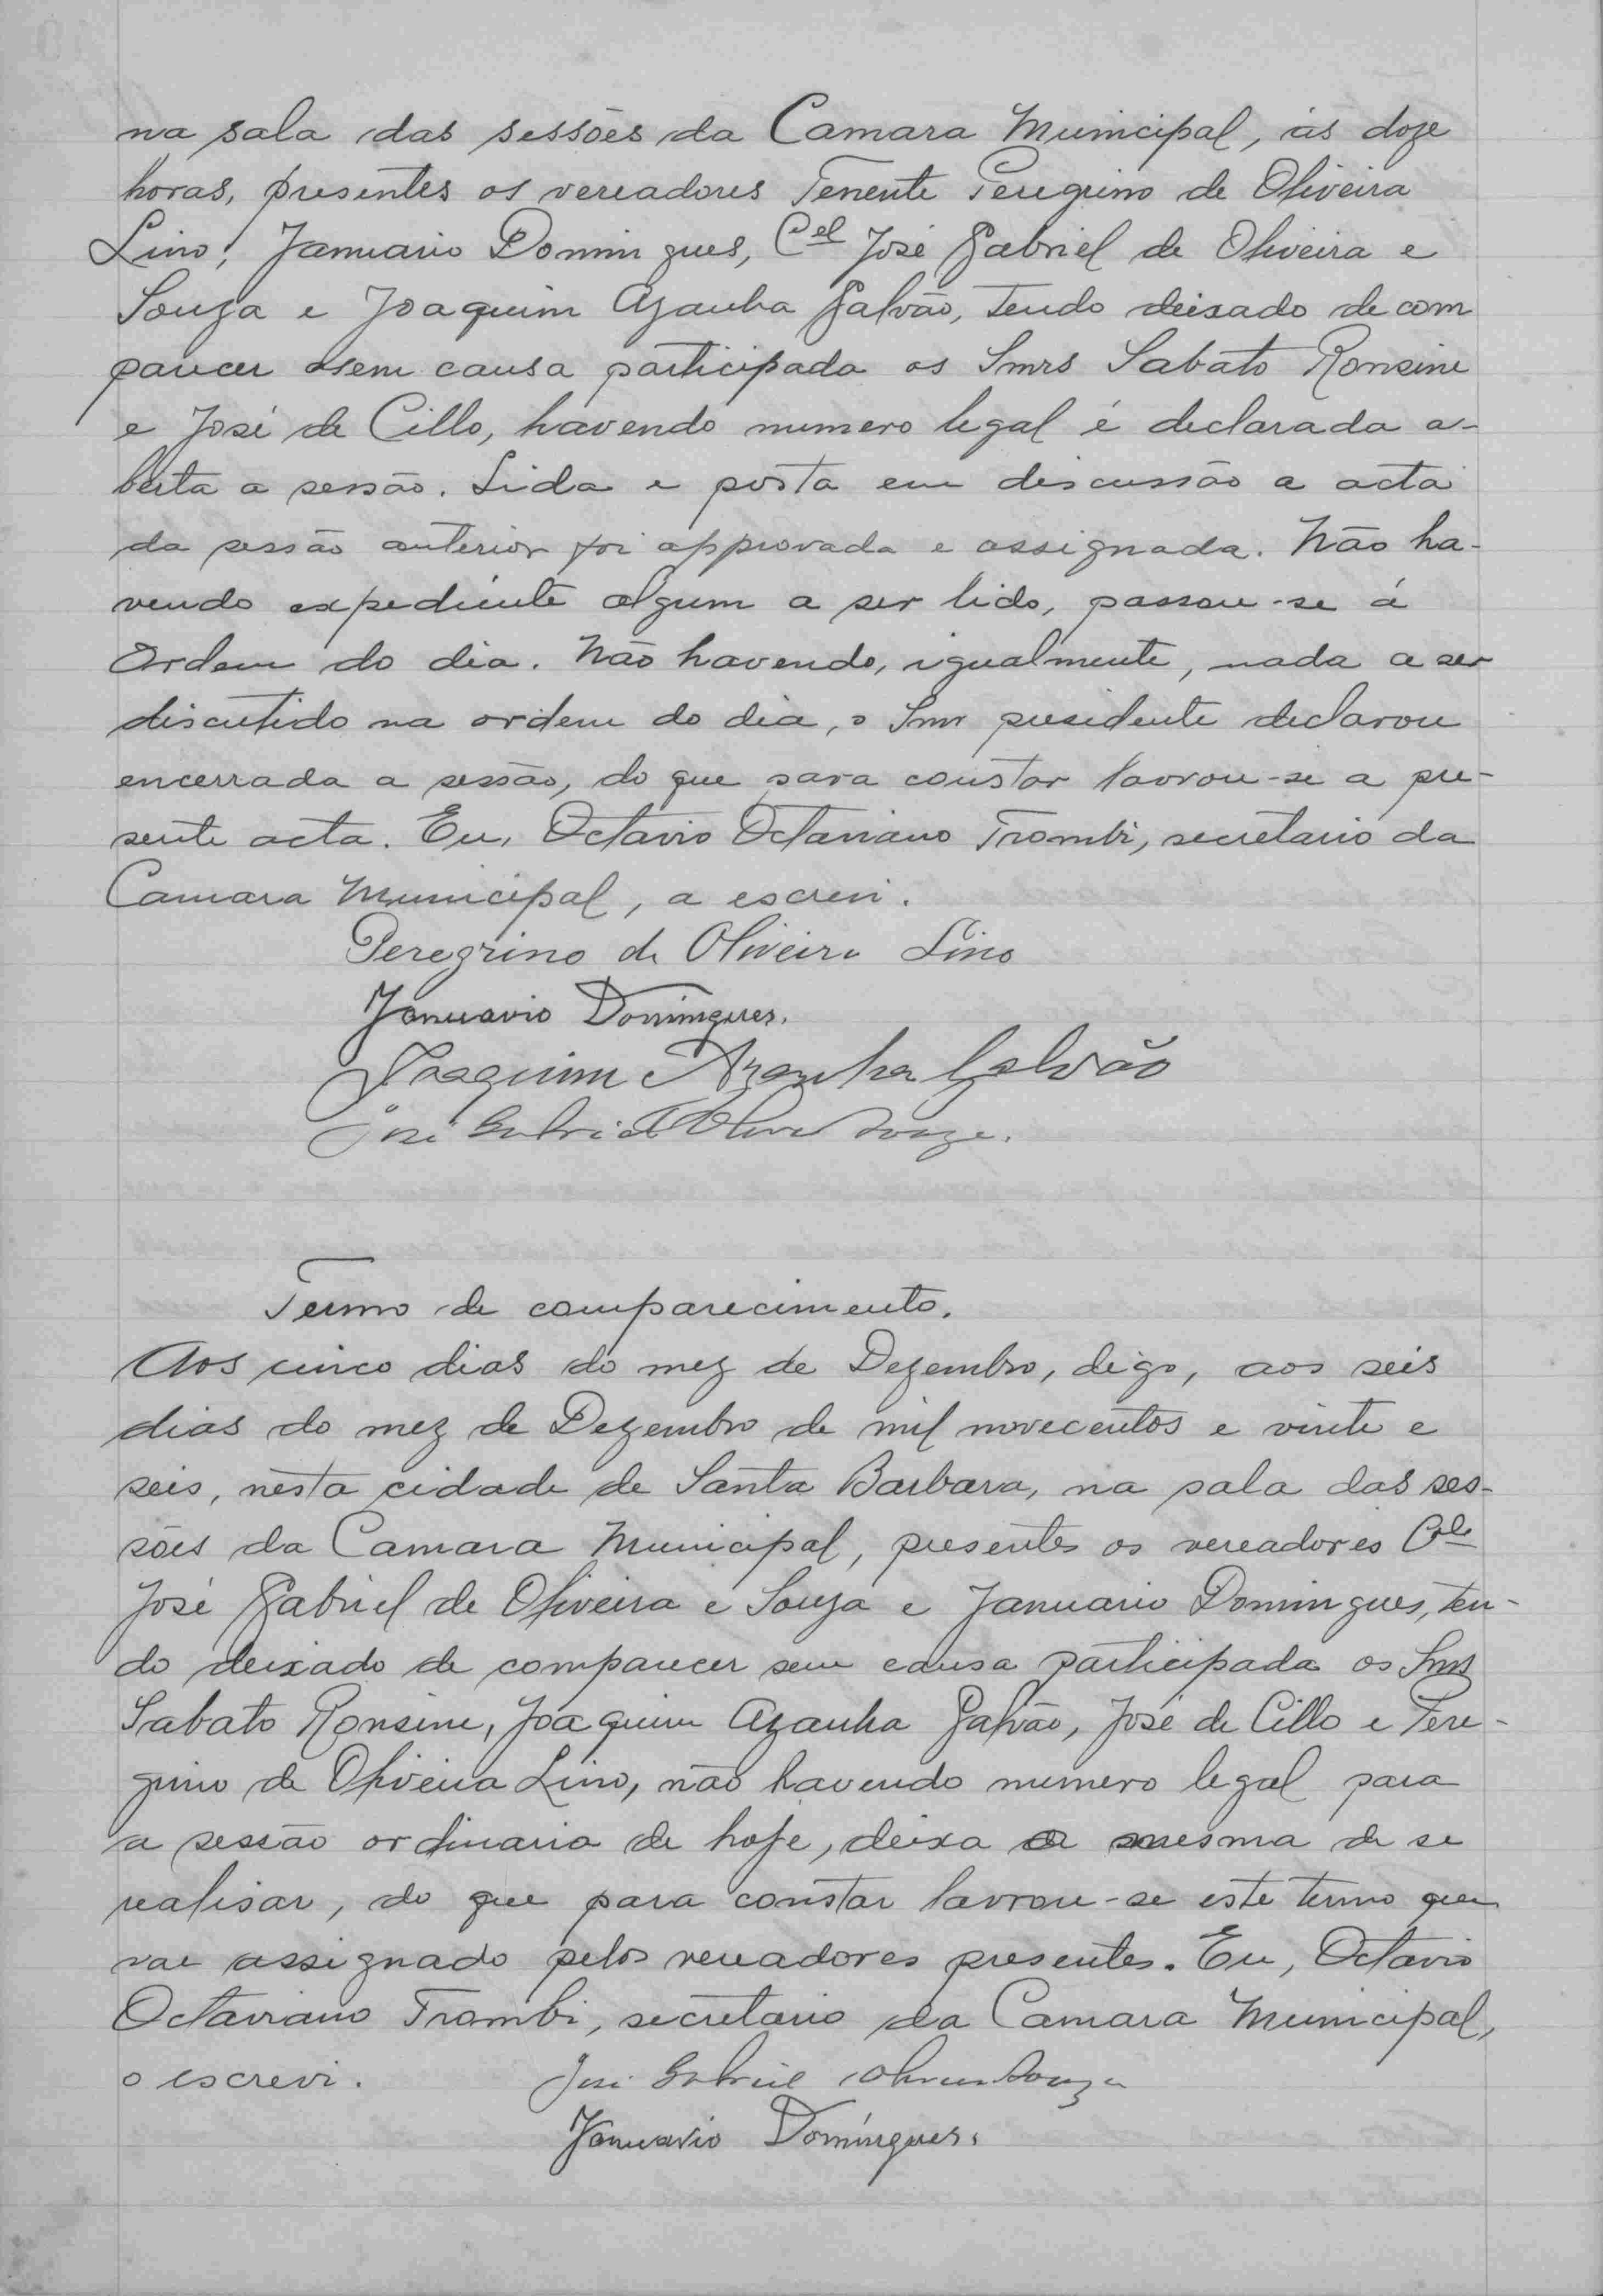 na sala das sessões da Camara Municipal, ás doze
horas, presentes os vereadores Tenente Peregrino de Oliveira
Lino, Januario Domingues, Cel José Gabriel de Oliveira e
Souza e Joaquim Azanha Galvão, tendo deixado de com
parecer sem causa participada os Snrs Sabato Ronsine
e José de Cillo, havendo numero legal é declarada a-
berta a sessão. Lida e posta em discussão a acta
da sessão anterior foi approvada e assignada. Não ha-
vendo expediente algum a ser lido, passou-se á
Ordem do dia. Não havendo, igualmente, nada a ser
discutido na ordem do dia, o Snr presidente declarou
encerrada a sessão, do que para constar lavrou-se a pre-
sente acta. Eu, Octavio Octaviano Trombi, secretario da
Camara Municipal, a escrevi.
Peregrino de Oliveira Lino
Januario Domingues.
Joaquim Azanha Galvão
José Gabriel Olivra Souza.
Termo de comparecimento.
Aos cinco dias do mez de Dezembro, digo, aos seis
dias do mez de Dezembro de mil novecentos e vinte e
seis, nesta cidade de Santa Barbara, na sala das ses-
sões da Camara Municipal, presentes os vereadores Cel
José Gabriel de Oliveira e Souza e Januario Domingues, ten-
do deixado de comparecer sem causa participada os Snrs
Sabato Ronsine, Joaquim Azanha Galvão, José de Cillo e Pere-
grino de Oliveira Lino, não havendo numero legal para
a sessão ordinaria de hoje, deixa a mesma de se
realisar, do que para constar lavrou-se este termo que
vae assignado pelos vereadores presentes. Eu, Octavio
Octaviano Trombi, secretario da Camara Municipal,
o escrevi. José Gabriel Olivra Souza
Januario Domingues.